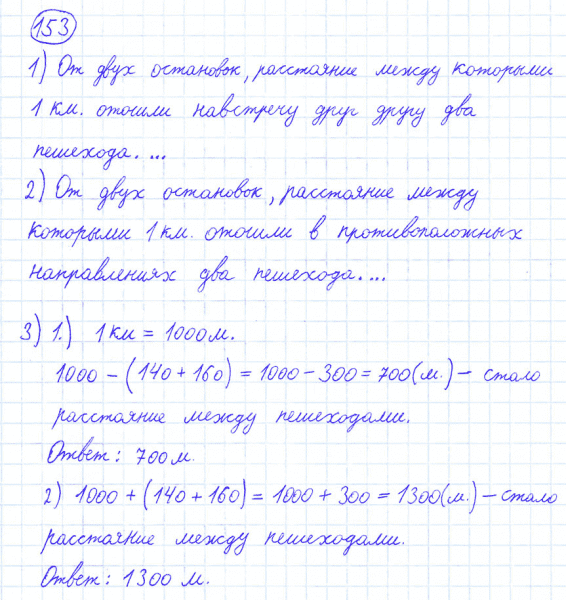 153
1) От двух остановок, расстаяние между которыми
1 км. отошли навстречу друг другу два
пешехода. ...
2) От двух остановок, расстаяние между
которыми 1 км. отошли в противоположных
направлениях два пешехода. ...
3) 1.) 1 км = 1000 м.
1000 - (140 + 160) = 1000 - 300 = 700 (м.) - стало
расстаяние между пешеходами.
Ответ: 700 м.
2) 1000 + (140 + 160) = 1000 + 300 = 1300 (м.) - стало
расстаяние между пешеходами.
Ответ: 1300 м.